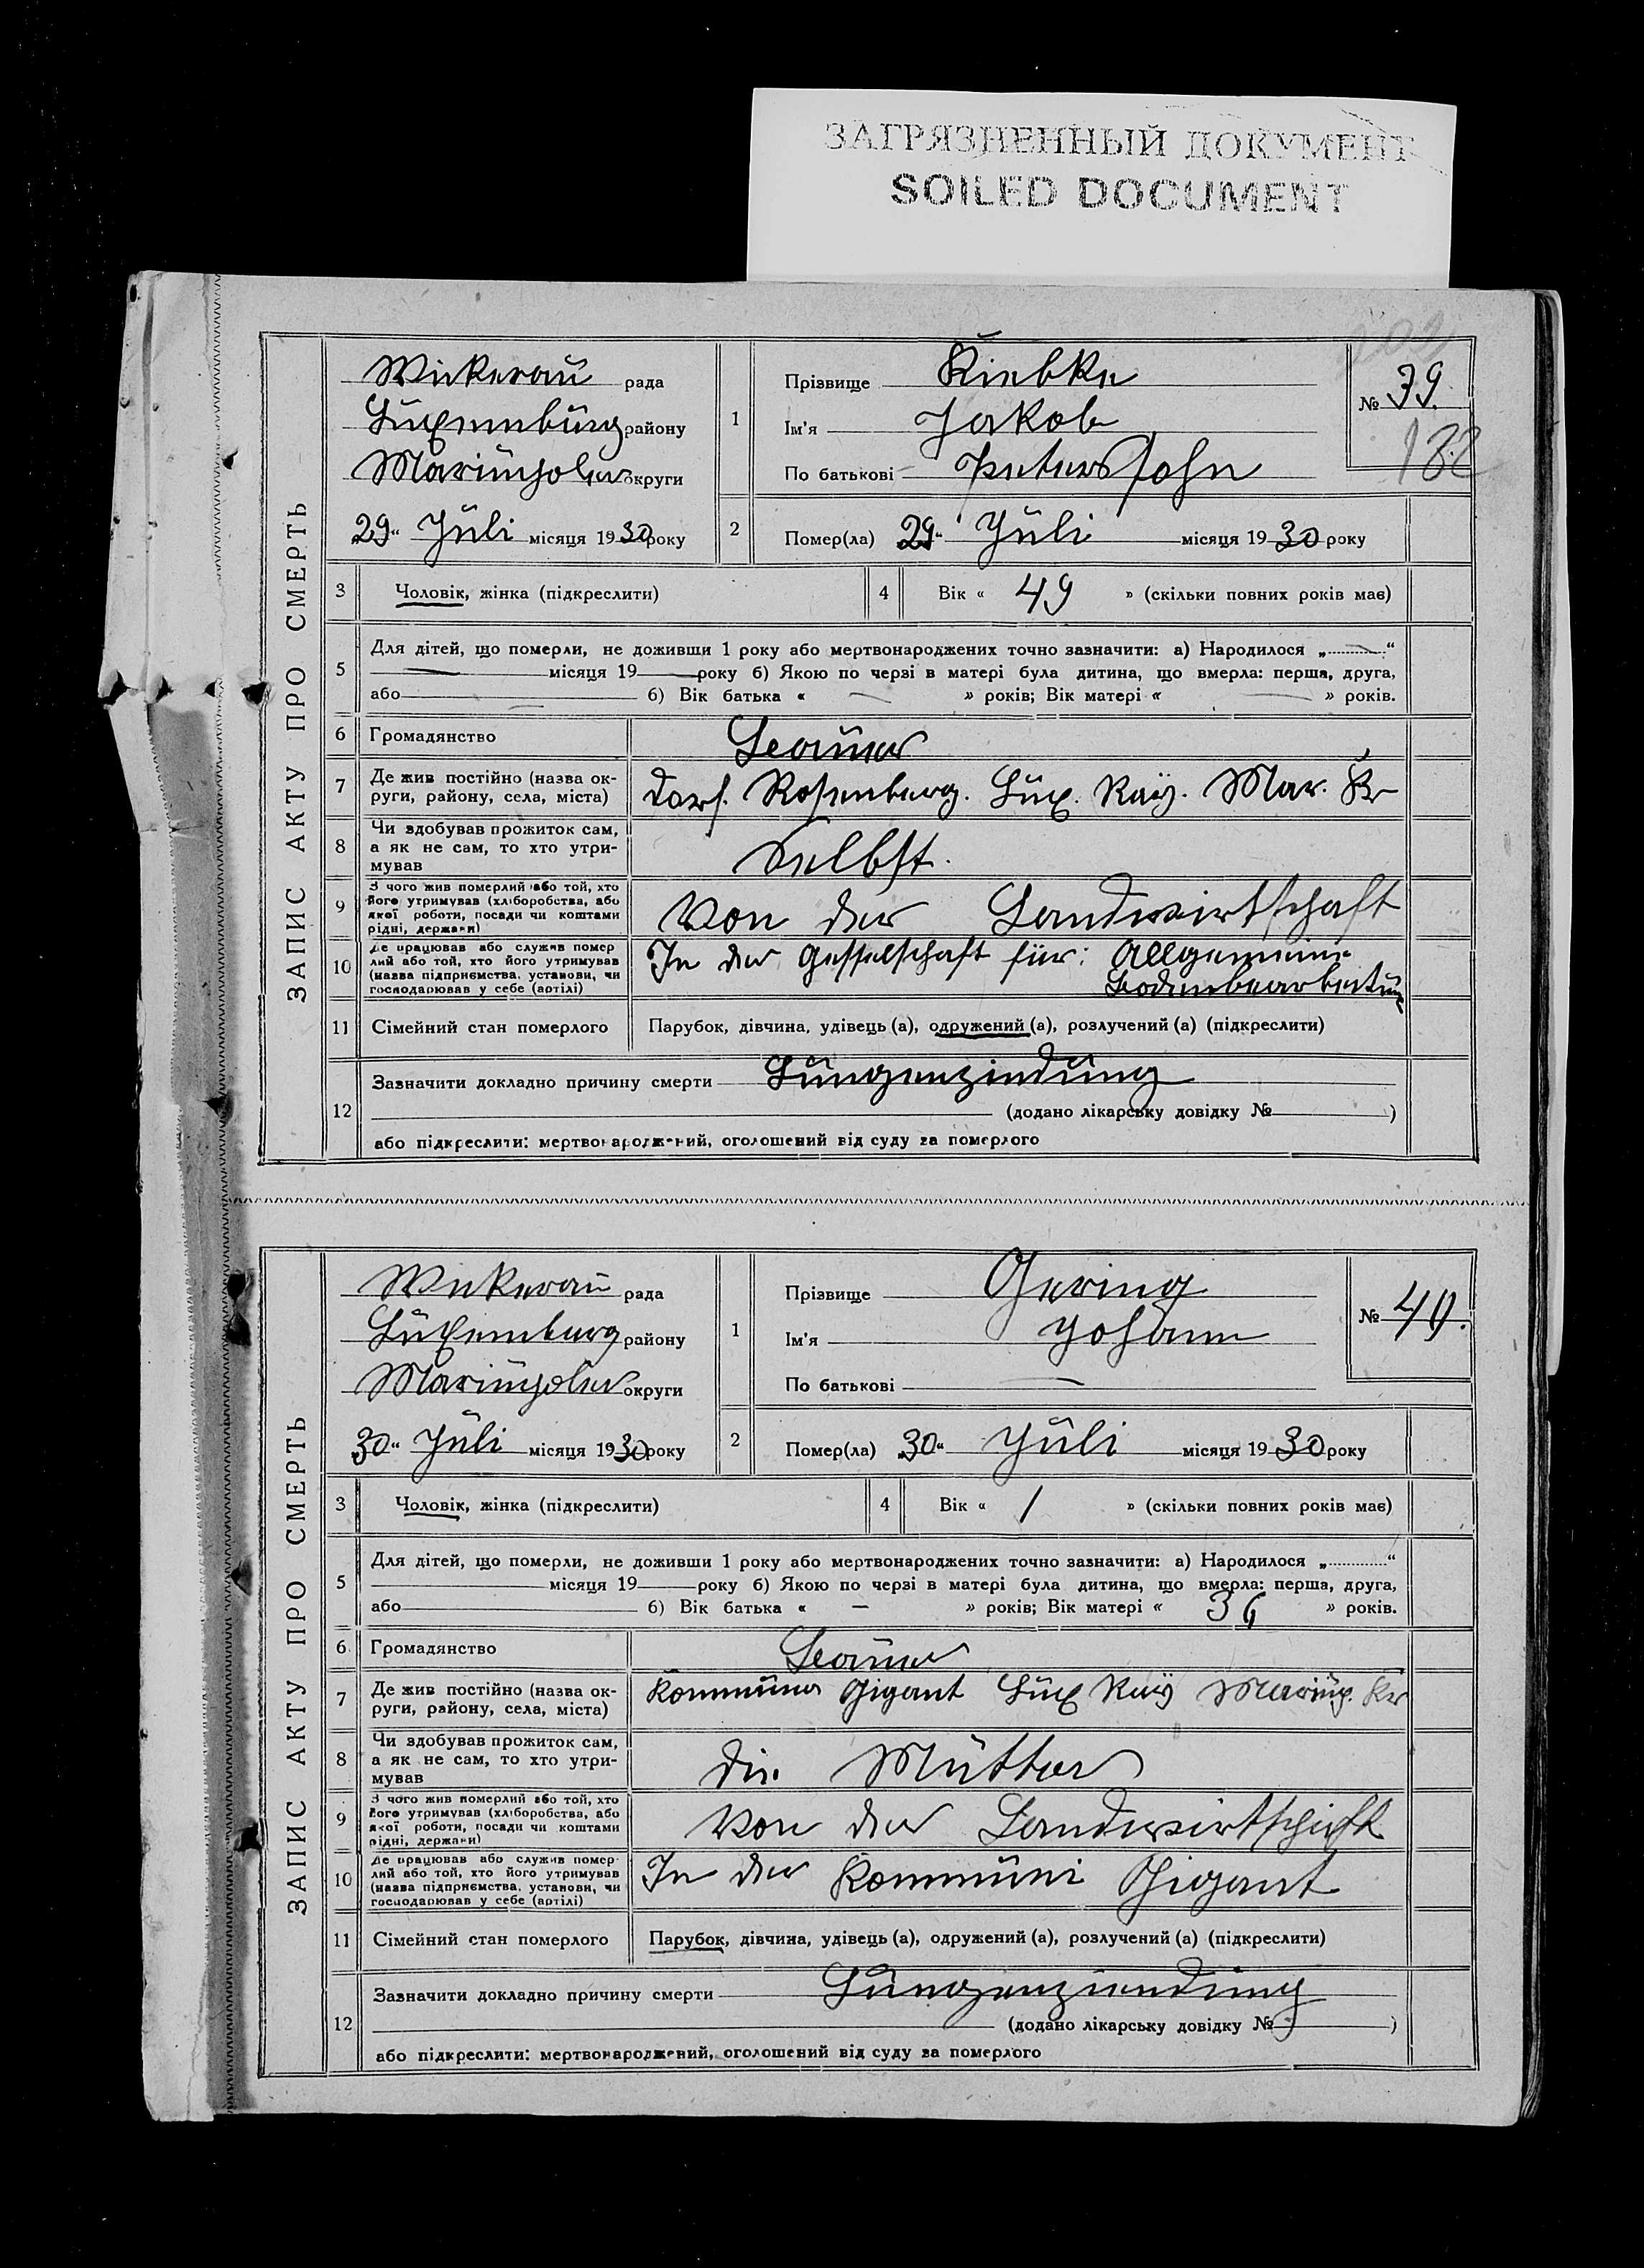 ЗАГРЯЗНЕННЫЙ ДОКУМЕНТ
SOILED DOCUMENT
202
ЗАПИС АКТУ ПРО СМЕРТЬ
Wickerau рада
Luxemburg району
Mariupoler округи
„29“ Juli місяця 1930 року
1
Прізвище Kiebke
Ім'я Jakob
По батькові Peterssohn
№ 39.
132
2 Помер(ла) „29“ Juli місяця 1930 року
3 Чоловік, жінка (підкреслити)
4 Вік « 49 » (скільки повних років має)
5 Для дітей, що померли, не доживши 1 року або мертвонароджених точно зазначити: а) Народилося „—“
— місяця 19— року б) Якою по черзі в матері була дитина, що вмерла: перша, друга,
або — б) Вік батька « — » років; Вік матері « — » років.
6 Громадянство
7 Де жив постійно (назва ок-
руги, району, села, міста)
Dorf. Rosenberg. Lux. Ray. Mar. Kr
8 Чи здобував прожиток сам,
а як не сам, то хто утри-
мував
Selbst.
9 З чого жив померлий або той, хто
його утримував (хліборобства, або
якої роботи, посади чи коштами
рідні, держави)
Von der Landwirtschaft
10 Де працював або служив помер
лий або той, хто його утримував
(назва підприємства, установи, чи
господарював у себе (артілі)
In der Gesselschaft für: Allgemeine
Bodenbearbeitung
11 Сімейний стан померлого
Парубок, дівчина, удівець (а), одружений (а), розлучений (а) (підкреслити)
12 Зазначити докладно причину смерти Lungenzindung
(додано лікарську довідку № )
або підкреслити: мертвонароджений, оголошений від суду за померлого
ЗАПИС АКТУ ПРО СМЕРТЬ
Wickerau рада
Luxemburg району
Mariupoler округи
„30“ Juli місяця 1930 року
1
Прізвище Gering
Ім'я Johann
По батькові —
№ 40.
2 Помер(ла) „30“ Juli місяця 1930 року
3 Чоловік, жінка (підкреслити)
4 Вік « 1 » (скільки повних років має)
5 Для дітей, що померли, не доживши 1 року або мертвонароджених точно зазначити: а) Народилося „ “
місяця 19 року б) Якою по черзі в матері була дитина, що вмерла: перша, друга,
або б) Вік батька « — » років; Вік матері « 36 » років.
6 Громадянство
7 Де жив постійно (назва ок-
руги, району, села, міста)
Kommuna Gigant Lux Ray Mariup. Kr
8 Чи здобував прожиток сам,
а як не сам, то хто утри-
мував
Die Mutter
9 З чого жив померлий або той, хто
його утримував (хліборобства, або
якої роботи, посади чи коштами
рідні, держави)
Von der Landwirtschaft
10 Де працював або служив помер
лий або той, хто його утримував
(назва підприємства, установи, чи
господарював у себе (артілі)
In der Kommuni Gigant
11 Сімейний стан померлого
Парубок, дівчина, удівець (а), одружений (а), розлучений (а) (підкреслити)
12 Зазначити докладно причину смерти Lungenziendung
(додано лікарську довідку № )
або підкреслити: мертвонароджений, оголошений від суду за померлого